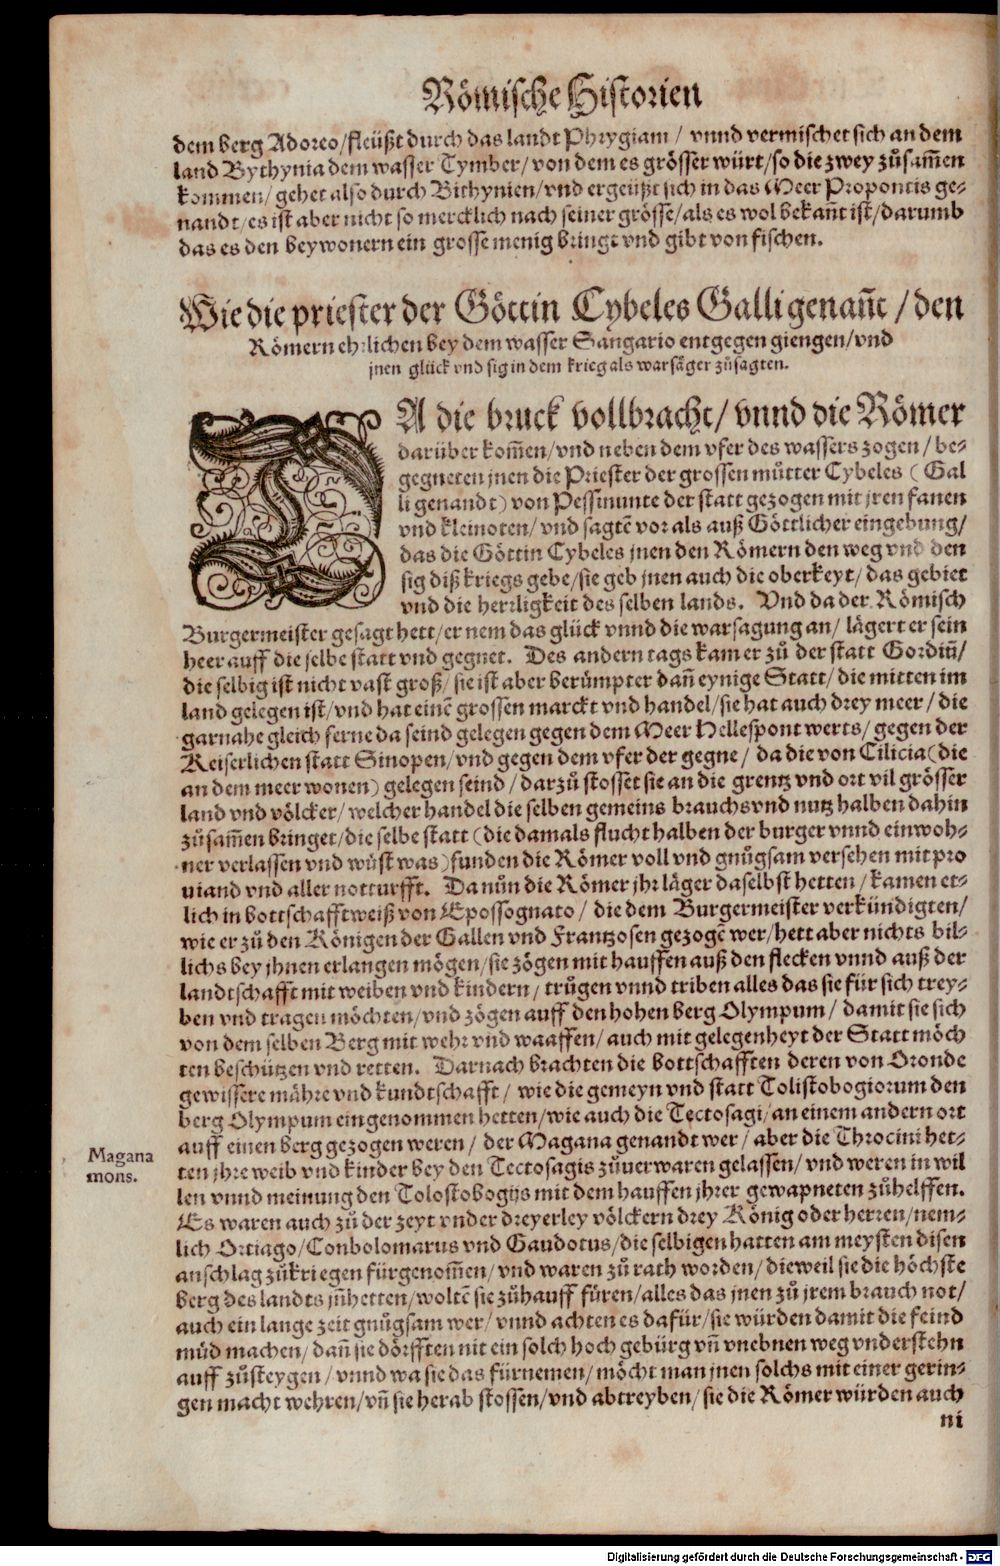 Römische Historien
dem berg Adoreo/fleüßt durch das landt Phrygiam / vnnd vermischet sich an dem
land Bythynia dem wasser Tymber/von dem es grösser würt/so die zwey zůsam̃en
kommen/ gehet also durch Bithynien/vnd ergeüßt sich in das Meer Propontis ge-
nandt/es ist aber nicht so mercklich nach seiner grösse/als es wol bekañt ist/darumb
das es den beywonern ein grosse menig bringt vnd gibt von fischen.
Wie die priester der Göttin Cybeles Galli genañt / den
Römern ehrlichen bey dem wasser Sangario entgegen giengen/vnd
jnen glück vnd sig in dem krieg als warsäger zůsagten.
DA die bruck vollbracht/ vnnd die Römer
darüber kom̃en/vnd neben dem vfer des wassers zogen / be-
gegneten jnen die Priester der grossen můtter Cybeles ( Gal
li genandt) von Pessinunte der statt gezogen mit jren fanen
vnd kleinoten/ vnd sagtē vor als auß Göttlicher eingebung/
das die Göttin Cybeles jnen den Römern den weg vnd den
sig diß kriegs gebe/sie geb jnen auch die oberkeyt/ das gebiet
vnd die herrligkeit des selben lands. Vnd da der Römisch
Burgermeister gesagt hett/er nem das glück vnnd die warsagung an/ lägert er sein
heer auff die selbe statt vnd gegnet. Des andern tags kam er zů der statt Gordiū/
die selbig ist nicht vast groß/ sie ist aber berümpter dañ eynige Statt/ die mitten im
land gelegen ist/vnd hat einē grossen marckt vnd handel/sie hat auch drey meer / die
garnahe gleich ferne da seind gelegen gegen dem Meer Hellespont werts/ gegen der
Keiserlichen statt Sinopen/vnd gegen dem vfer der gegne / da die von Cilicia (die
an dem meer wonen) gelegen seind / darzů stosset sie an die grentz vnd ort vil grösser
land vnd völcker/ welcher handel die selben gemeins brauchs vnd nutz halben dahin
zůsam̃en bringet/die selbe statt (die damals flucht halben der burger vnnd einwoh-
ner verlassen vnd wůst was) funden die Römer voll vnd gnůgsam versehen mit pro
uiand vnd aller notturfft. Da nůn die Römer jhr läger daselbst hetten / kamen et-
lich in bottschafftweiß von Epossognato / die dem Burgermeister verkündigten/
wie er zů den Königen der Gallen vnd Frantzosen gezogē wer/hett aber nichts bil-
lichs bey jhnen erlangen mögen/sie zögen mit hauffen auß den flecken vnnd auß der
landtschafft mit weiben vnd kindern / trůgen vnnd triben alles das sie für sich trey-
ben vnd tragen möchten/vnd zögen auff den hohen berg Olympum / damit sie sich
von dem selben Berg mit wehr vnd waaffen/ auch mit gelegenheyt der Statt möch
ten beschützen vnd retten. Darnach brachten die bottschafften deren von Oronde
gewissere mähre vnd kundtschafft / wie die gemeyn vnd statt Tolistobogiorum den
berg Olympum eingenommen hetten/wie auch die Tectosagi/an einem andern ort
auff einen berg gezogen weren / der Magana genandt wer / aber die Throcini het-
Magana
mons.
ten jhre weib vnd kinder bey den Tectosagis zůuerwaren gelassen/ vnd weren in wil
len vnnd meinung den Tolostobogijs mit dem hauffen jhrer gewapneten zůhelffen.
Es waren auch zů der zeyt vnder dreyerley völckern drey König oder herren/nem-
lich Ortiago/Conbolomarus vnd Gaudotus/die selbigen hatten am meysten disen
anschlag zůkriegen fürgenom̃en/ vnd waren zů rath worden / dieweil sie die höchste
berg des landts jñhetten/woltē sie zůhauff füren/alles das jnen zů jrem brauch not/
auch ein lange zeit gnůgsam wer/ vnnd achten es dafür/sie würden damit die feind
můd machen/ dañ sie dörfften nit ein solch hoch gebürg vñ vnebnen weg vnderstehn
auff zůsteygen / vnnd wa sie das fürnemen/ möcht man jnen solchs mit einer gerin-
gen macht wehren/vñ sie herab stossen/vnd abtreyben/ sie die Römer würden auch
ni
Digitalisierung gefördert durch die Deutsche Forschungsgemeinschaft - DFG